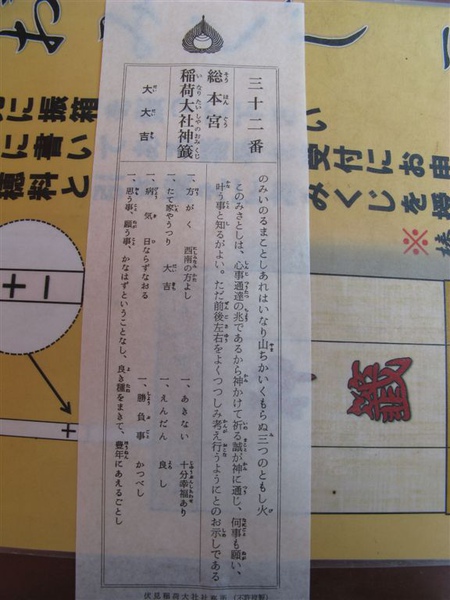 三十二番
総本宮
稲荷大社神籤
大大吉
のみいのるまことしあれはいなり山ちかいくもらぬ三つのともし火
このみさとしは、心事通達の兆であるから神かけて祈る誠が神に通じ、何事も願い、
叶う事と知るがよい。ただ前後左右をよくつつしみ考え行うようにとのお示しである
一、方がく 西南の方よし
一、たて家やうつり 大吉
一、病気 日ならずなおる
一、あきない 十分幸福あり
一、えんだん 良し
一、勝負事 かつべし
一、思う事、願う事、かなはずということなし、良き種をまきて、豊年にあえるごとし
伏見稲荷大社
に振箱
に書い
い
受付にお
みくじを
※
籤
＋
－
＋